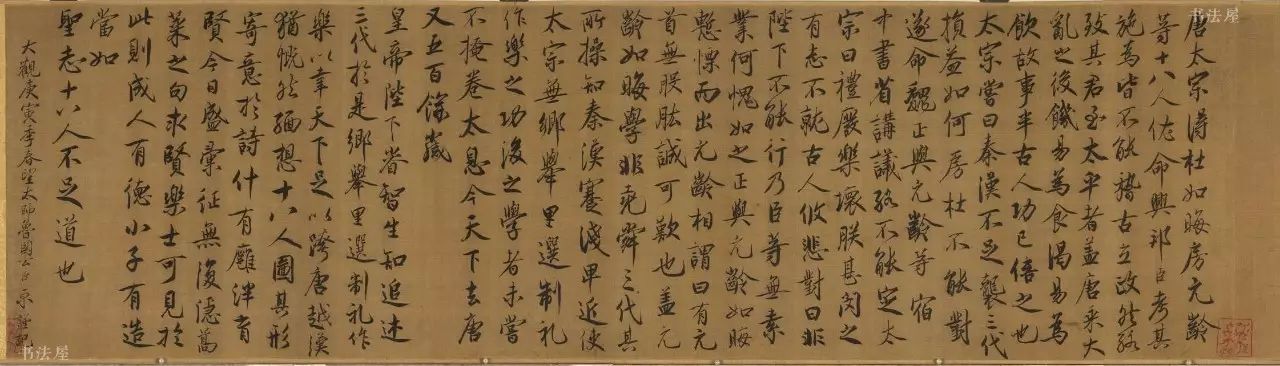 唐太宗得杜如晦房元齡
等十八人佐命興邦臣考其
施為皆不能稽古立政然終
致其君至太平者蓋唐承大
亂之後饑易為食渴易為
飲故事半古人功已倍之也
太宗嘗曰秦漢不足襲三代
損益如何房杜不能對
遂命魏正與元齡等宿
中書省講議終不能定太
宗曰禮廢樂壞朕甚閔之
有志不就古人攸悲對曰非
陛下不能行乃臣等無素
業何愧如之正與元齡如晦
慙慄而出元齡相謂曰有元
首無股肱誠可歎也蓋元
齡如晦學非堯舜三代其
所操知秦漢蹇淺卑近使
太宗無鄉舉里選制礼
作樂之功後之學者未嘗
不掩卷太息今天下去唐
又五百餘歲
皇帝陛下睿智生知追述
三代於是鄉舉里選制礼作
樂以幸天下足以跨唐越漢
猶慨然緬想十八人圖其形
寄意於詩什有廱泮育
賢今日盛彙征無復隱蒿
萊之句求賢樂士可見於
此則成人有德小子有造
當如
聖志十八人不足道也
大觀庚寅季春望太師魯國公臣京謹題
书法屋
书法屋